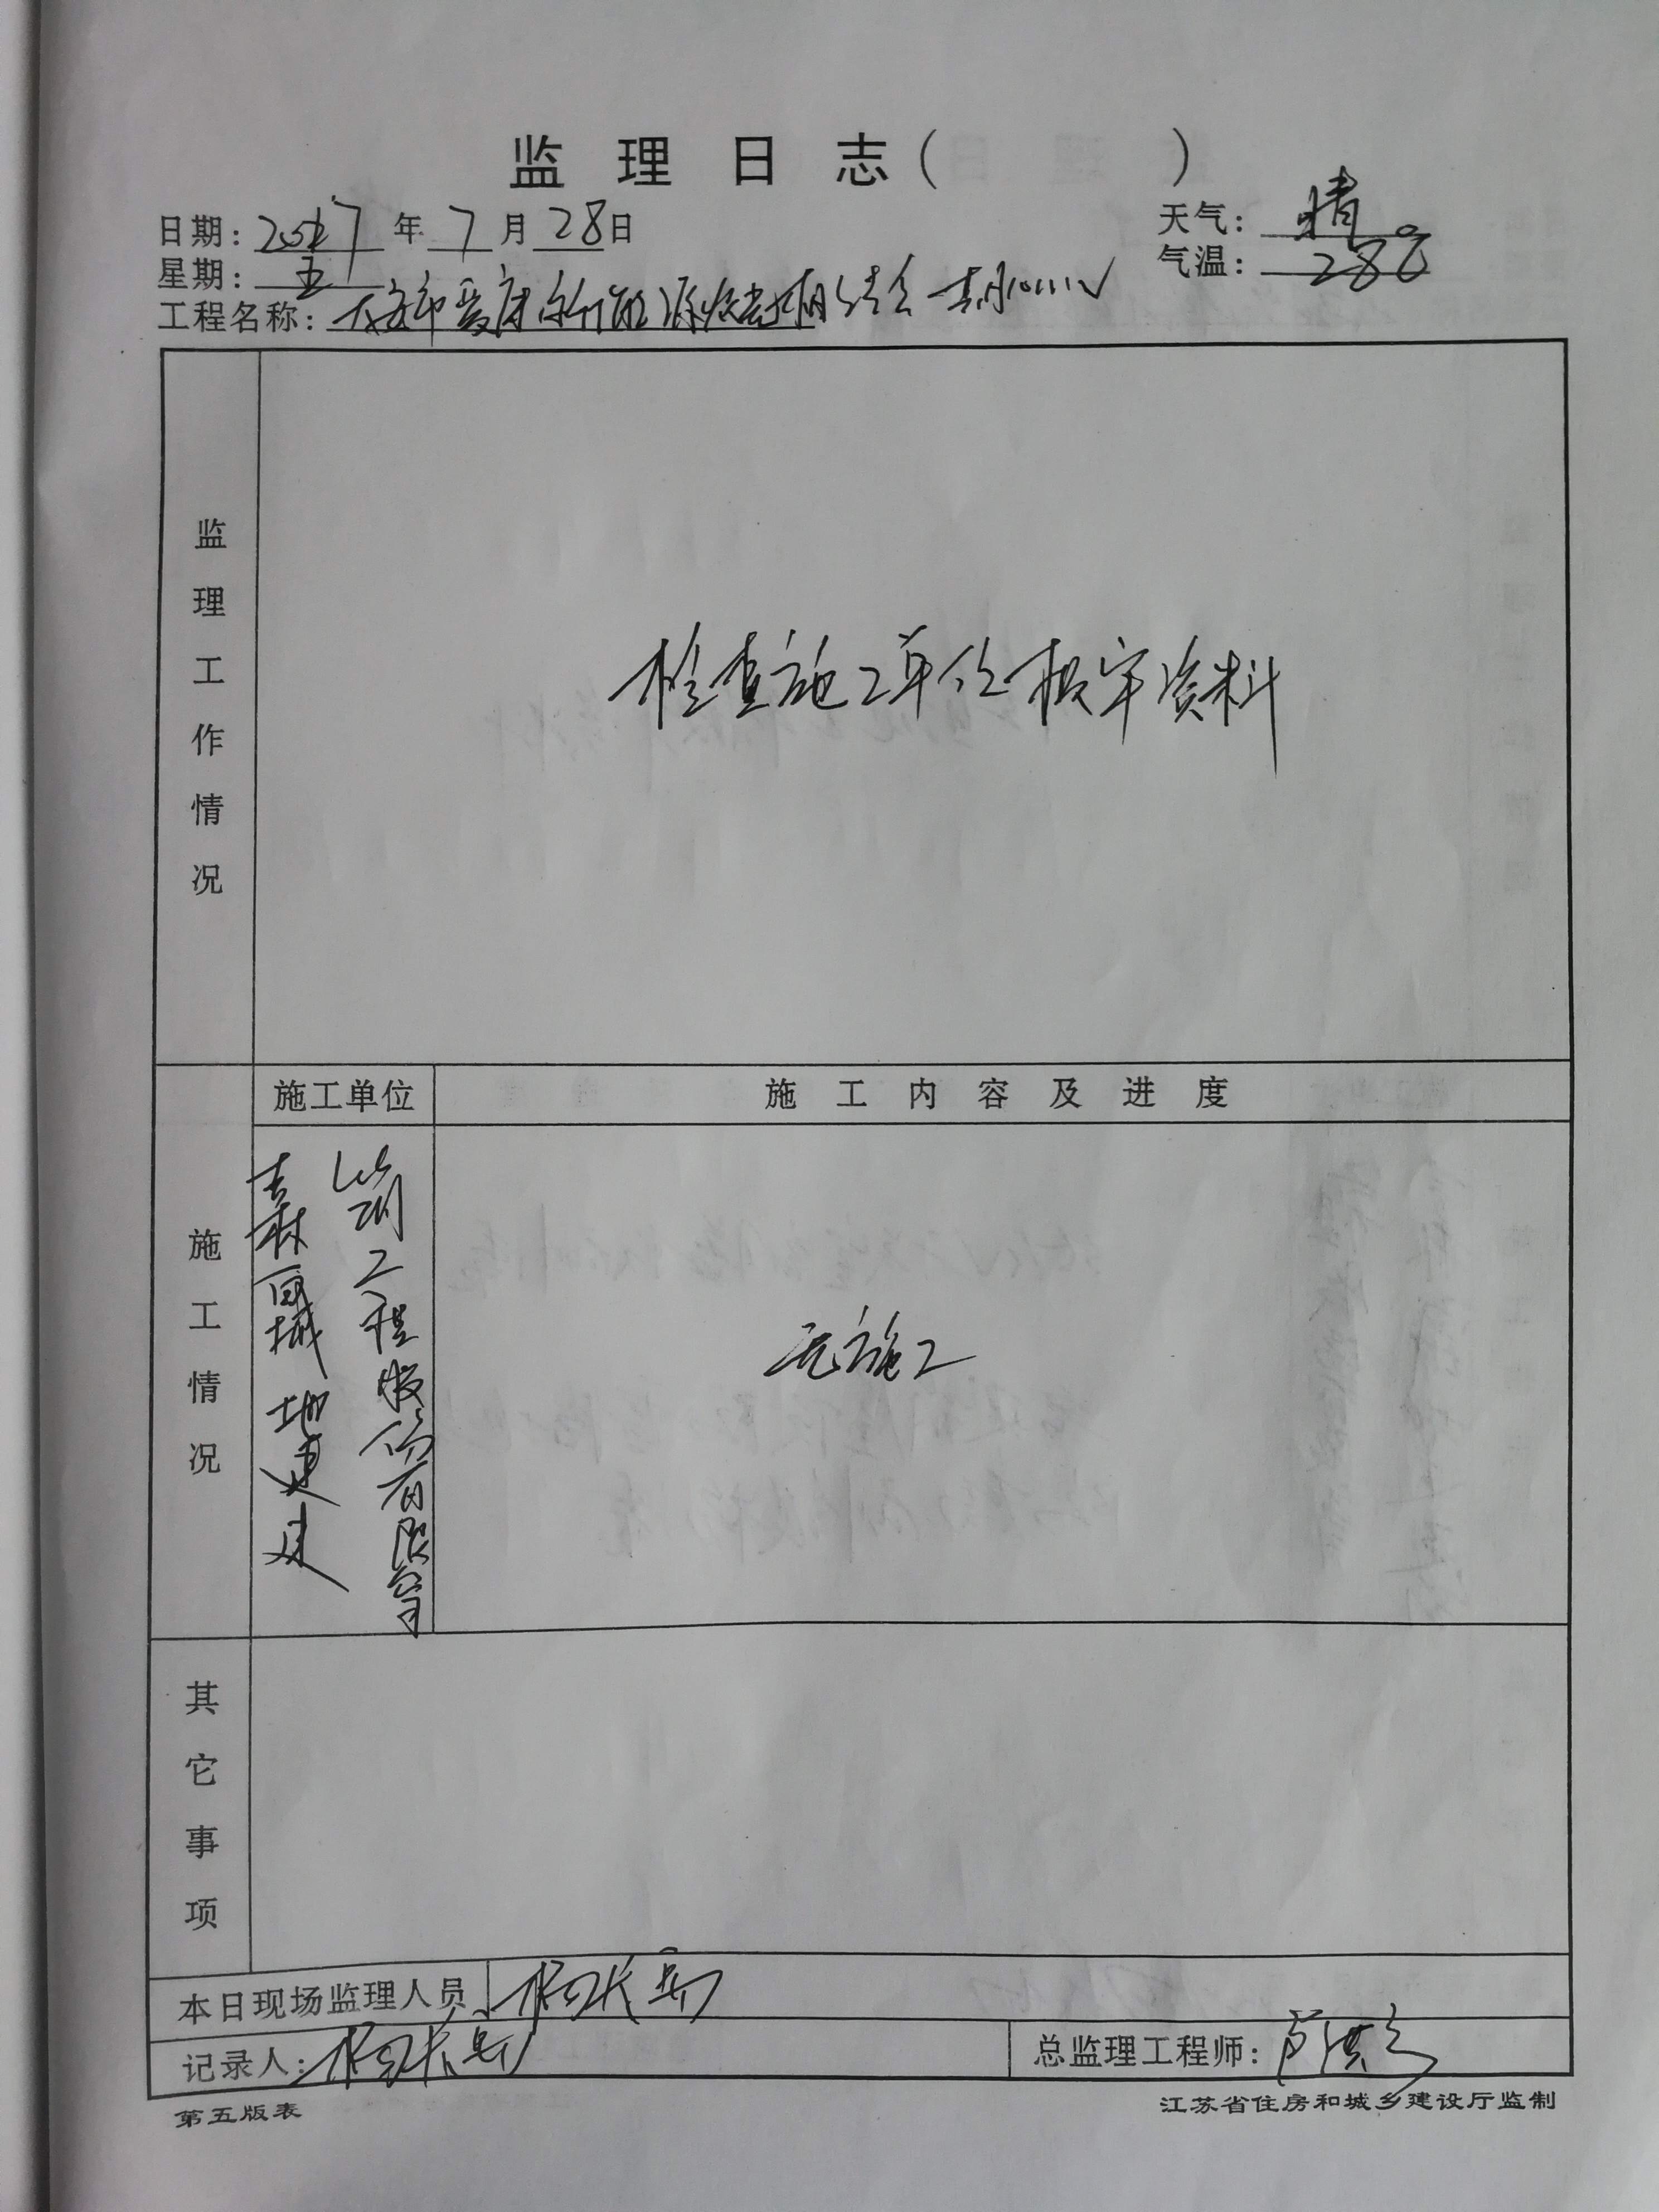 监理日志( )
日期: 2017 年 7 月 28 日
天气: 晴
星期: 五
气温: 28℃
工程名称: 大安市爱康新能源
监理工作情况
检查施工单位报审资料
施工单位
施工内容及进度
施工情况
吉林 地
筑工程股份有限公司
无施工
其它事项
本日现场监理人员 杨长岳
记录人: 杨长岳
总监理工程师: 卢洪
第五版表
江苏省住房和城乡建设厅监制